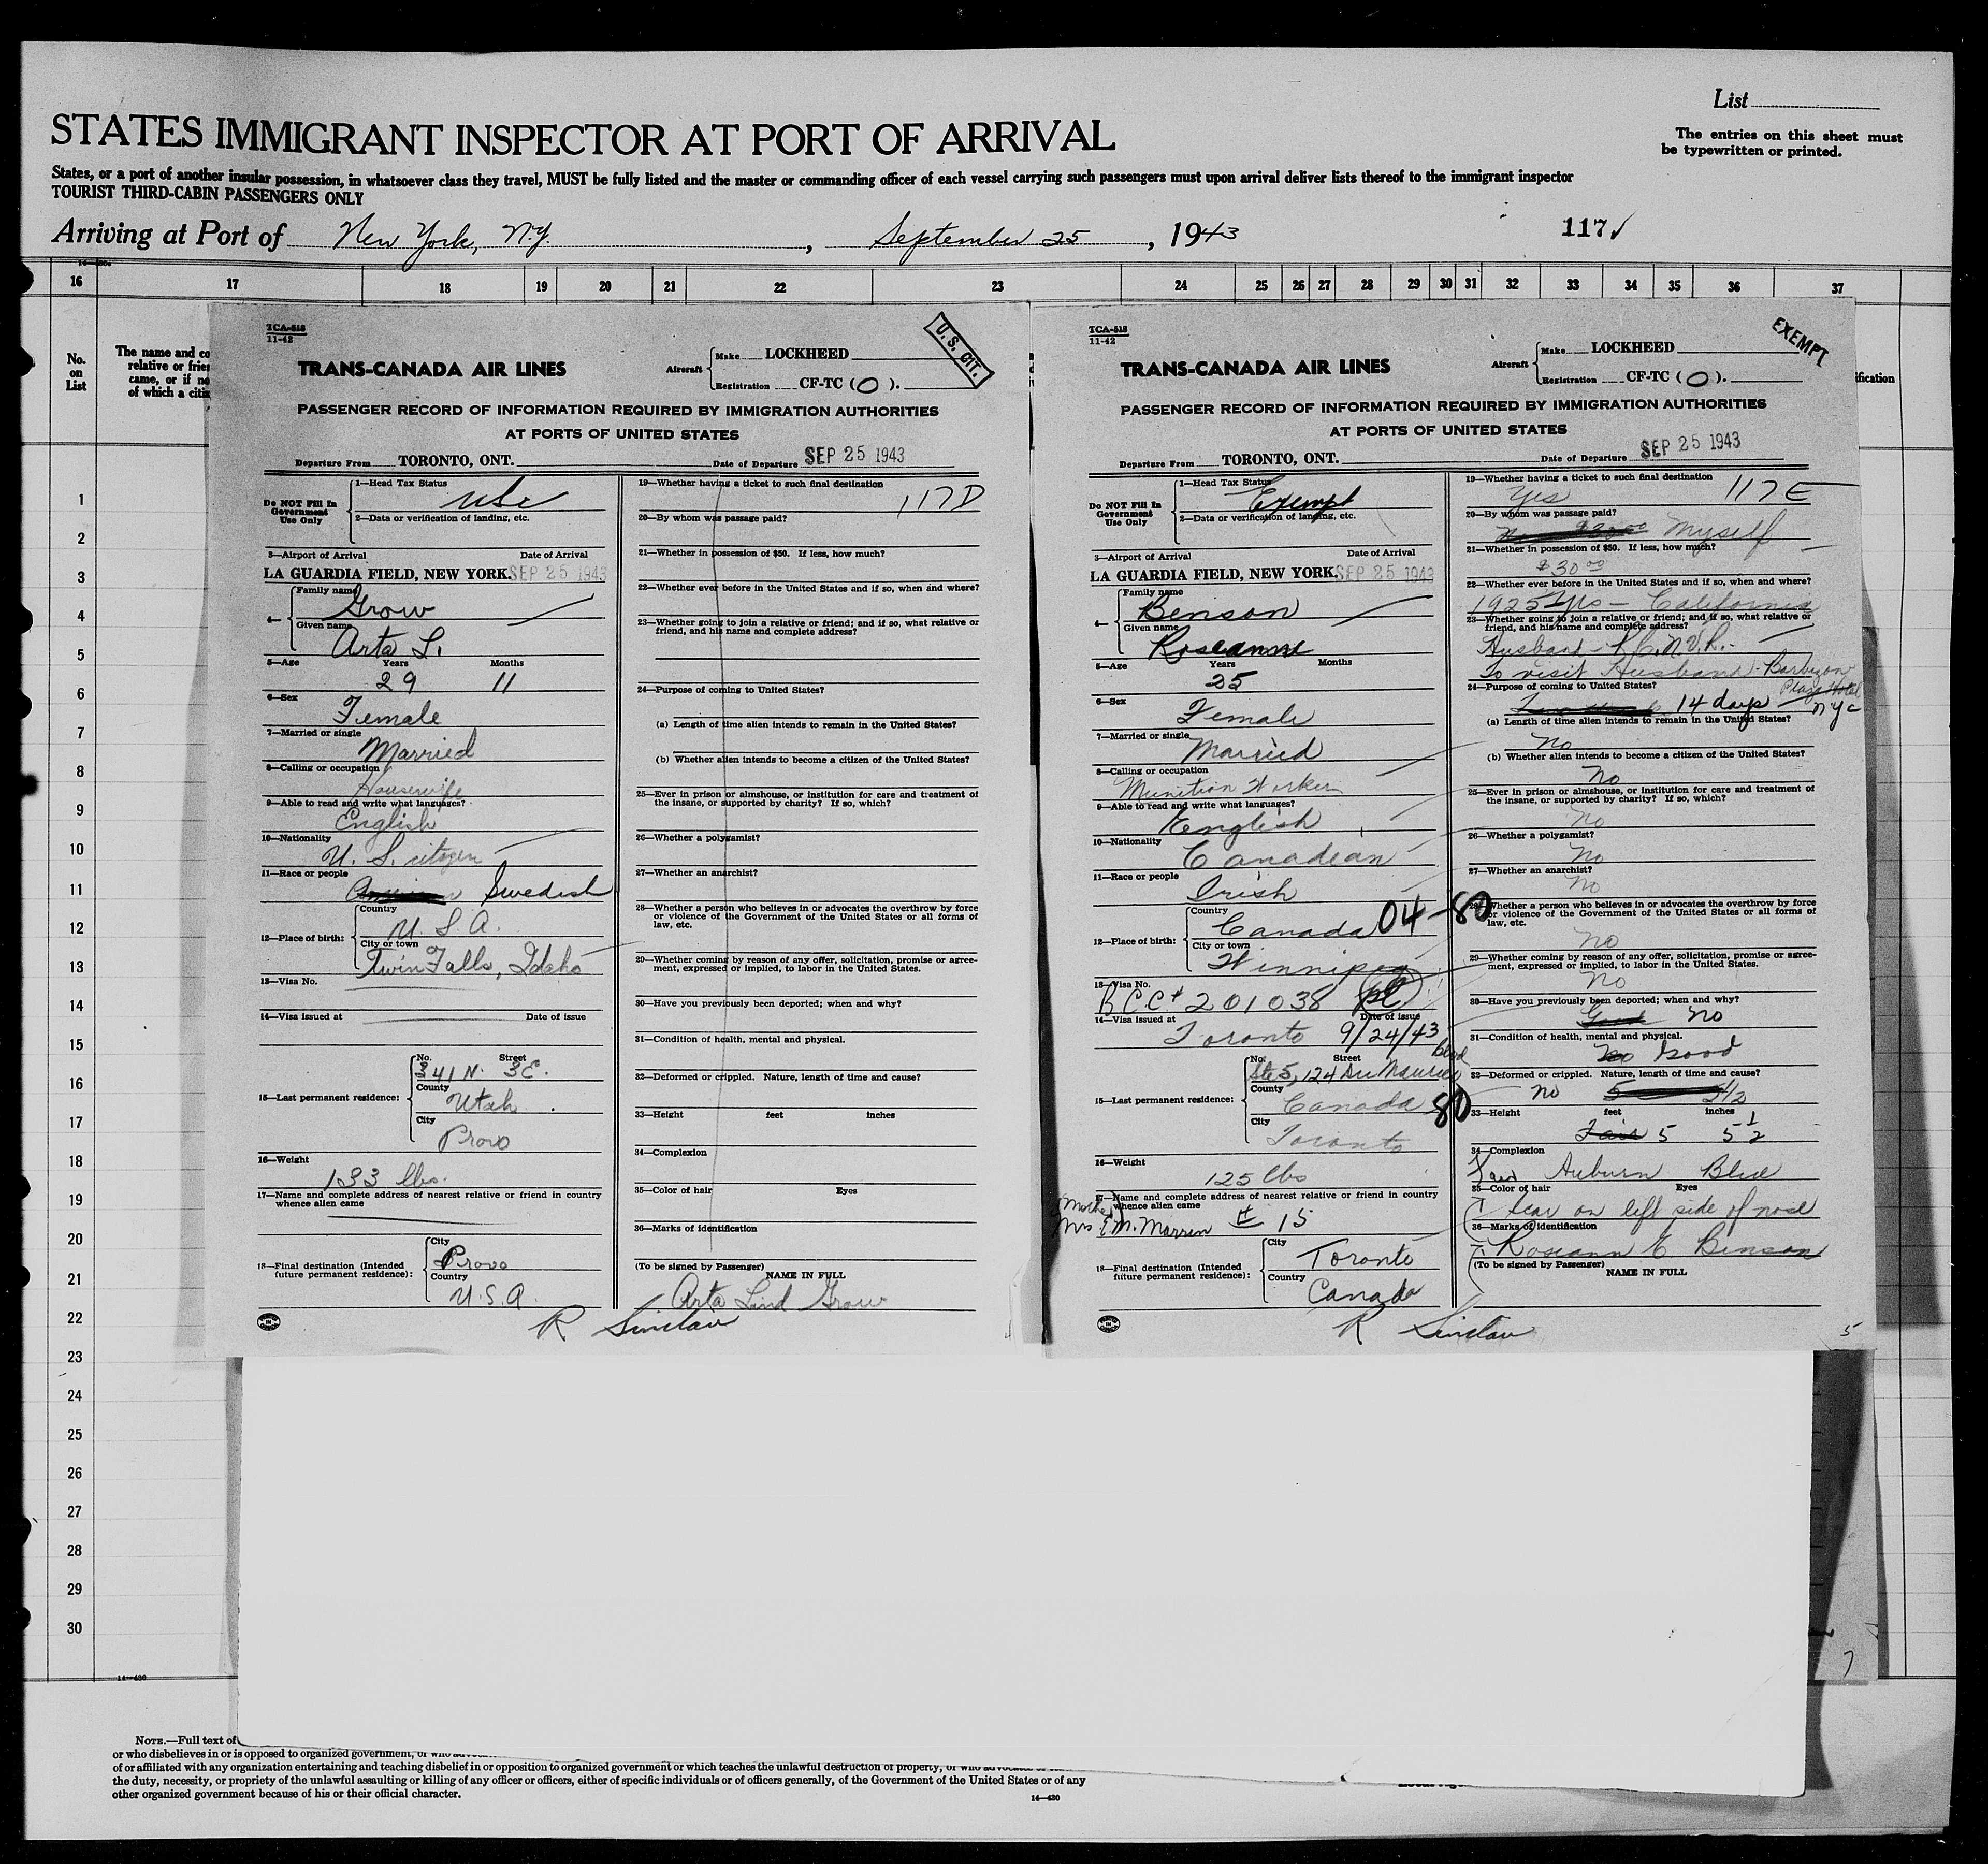 List
STATES IMMIGRANT INSPECTOR AT PORT OF ARRIVAL
The entries on this sheet must
be typewritten or printed.
States, or a port of another insular possession, in whatsoever class they travel, MUST be fully listed and the master or commanding officer of each vessel carrying such passengers must upon arrival deliver lists thereof to the immigrant inspector
TOURIST THIRD-CABIN PASSENGERS ONLY
Arriving at Port of New York, N.Y. , September 25 , 1943
117
16 17 18 19 20 21 22 23 24 25 26 27 28 29 30 31 32 33 34 35 36 37
No.
on
List
The name and co
relative or frie
came, or if no
of which a citi
ification
1
2
3
4
5
6
7
8
9
10
11
12
13
14
15
16
17
18
19
20
21
22
23
24
25
26
27
28
29
30
TCA-518
11-42
U. S. CIT.
TRANS-CANADA AIR LINES
Aircraft
Make LOCKHEED
Registration CF-TC (O).
PASSENGER RECORD OF INFORMATION REQUIRED BY IMMIGRATION AUTHORITIES
AT PORTS OF UNITED STATES
Departure From TORONTO, ONT. Date of Departure SEP 25 1943
Do NOT Fill In
Government
Use Only
1—Head Tax Status
USC
2—Data or verification of landing, etc.
3—Airport of Arrival Date of Arrival
LA GUARDIA FIELD, NEW YORK. SEP 25 1943
4— Family name
Grow
Given name
Arta L.
5—Age Years Months
29 11
6—Sex
Female
7—Married or single
Married
8—Calling or occupation
Housewife
9—Able to read and write what languages?
English
10—Nationality
U. S. citizen
11—Race or people
Swedish
12—Place of birth:
Country
U. S. A.
City or town
Twin Falls, Idaho
13—Visa No.
14—Visa issued at Date of issue
15—Last permanent residence:
No. Street
341 N. 3E.
County
Utah
City
Provo
16—Weight
133 lbs.
17—Name and complete address of nearest relative or friend in country
whence alien came
18—Final destination (Intended
future permanent residence):
City
Provo
Country
U.S.A.
19—Whether having a ticket to such final destination
117D
20—By whom was passage paid?
21—Whether in possession of $50. If less, how much?
22—Whether ever before in the United States and if so, when and where?
23—Whether going to join a relative or friend; and if so, what relative or
friend, and his name and complete address?
24—Purpose of coming to United States?
(a) Length of time alien intends to remain in the United States?
(b) Whether alien intends to become a citizen of the United States?
25—Ever in prison or almshouse, or institution for care and treatment of
the insane, or supported by charity? If so, which?
26—Whether a polygamist?
27—Whether an anarchist?
28—Whether a person who believes in or advocates the overthrow by force
or violence of the Government of the United States or all forms of
law, etc.
29—Whether coming by reason of any offer, solicitation, promise or agree-
ment, expressed or implied, to labor in the United States.
30—Have you previously been deported; when and why?
31—Condition of health, mental and physical.
32—Deformed or crippled. Nature, length of time and cause?
33—Height feet inches
34—Complexion
35—Color of hair Eyes
36—Marks of identification
(To be signed by Passenger)
NAME IN FULL
Arta Lind Grow
R Sinclair
TCA-518
11-42
EXEMPT
TRANS-CANADA AIR LINES
Aircraft
Make LOCKHEED
Registration CF-TC (O).
PASSENGER RECORD OF INFORMATION REQUIRED BY IMMIGRATION AUTHORITIES
AT PORTS OF UNITED STATES
Departure From TORONTO, ONT. Date of Departure SEP 25 1943
Do NOT Fill In
Government
Use Only
1—Head Tax Status
Exempt
2—Data or verification of landing, etc.
3—Airport of Arrival Date of Arrival
LA GUARDIA FIELD, NEW YORK. SEP 25 1943
4— Family name
Benson
Given name
Roseanne
5—Age Years Months
25
6—Sex
Female
7—Married or single
Married
8—Calling or occupation
Munition Worker
9—Able to read and write what languages?
English
10—Nationality
Canadian
11—Race or people
Irish
12—Place of birth:
Country
Canada 04-80
City or town
Winnipeg
13—Visa No.
BCC# 201038
14—Visa issued at Date of issue
Toronto 9/24/43
15—Last permanent residence:
No. Street
Ste 5, 124 Du Maurier Blvd
County
Canada 80
City
Toronto
16—Weight
125 lbs
17—Name and complete address of nearest relative or friend in country
whence alien came
(Mother)
Mrs E.M. Marrin # 15
18—Final destination (Intended
future permanent residence):
City
Toronto
Country
Canada
19—Whether having a ticket to such final destination
Yes 117E
20—By whom was passage paid?
Myself
21—Whether in possession of $50. If less, how much?
$30.00
22—Whether ever before in the United States and if so, when and where?
1925 Yes — California
23—Whether going to join a relative or friend; and if so, what relative or
friend, and his name and complete address?
Husband - R.C.N.V.R.
To visit Husband - Barbizon
Plaza Hotel
NYC
24—Purpose of coming to United States?
14 days
(a) Length of time alien intends to remain in the United States?
No
(b) Whether alien intends to become a citizen of the United States?
No
25—Ever in prison or almshouse, or institution for care and treatment of
the insane, or supported by charity? If so, which?
No
26—Whether a polygamist?
No
27—Whether an anarchist?
No
28—Whether a person who believes in or advocates the overthrow by force
or violence of the Government of the United States or all forms of
law, etc.
No
29—Whether coming by reason of any offer, solicitation, promise or agree-
ment, expressed or implied, to labor in the United States.
No
30—Have you previously been deported; when and why?
Good No
31—Condition of health, mental and physical.
No Good
32—Deformed or crippled. Nature, length of time and cause?
No 5 5 1/2
33—Height feet inches
Fair 5 5 1/2
34—Complexion
Fair Auburn Blue
35—Color of hair Eyes
Scar on left side of nose
36—Marks of identification
Roseann E. Benson
(To be signed by Passenger)
NAME IN FULL
R Sinclair
5
7
14—430
NOTE.—Full text of
or who disbelieves in or is opposed to organized government, or who
of or affiliated with any organization entertaining and teaching disbelief in or opposition to organized government or which teaches the unlawful destruction of property, or who
the duty, necessity, or propriety of the unlawful assaulting or killing of any officer or officers, either of specific individuals or of officers generally, of the Government of the United States or of any
other organized government because of his or their official character.
14—430